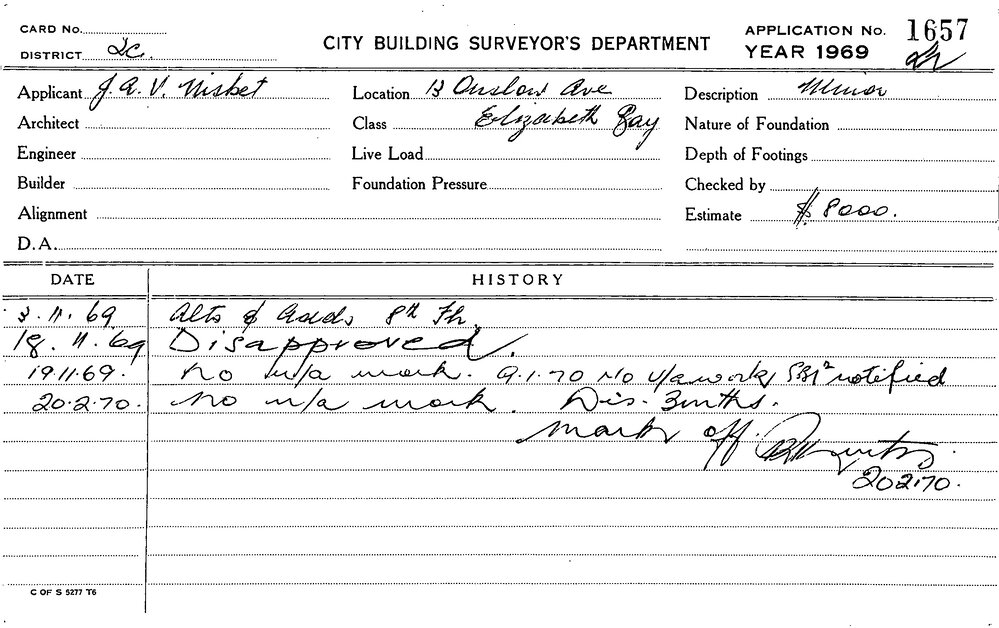 CARD No.
DISTRICT
CITY BUILDING SURVEYOR'S DEPARTMENT
APPLICATION No. 1657
YEAR 1969
Applicant J. A. V. Nisbet
Location 13 Onslow Ave
Description Minor
Architect
Class Elizabeth Bay
Nature of Foundation
Engineer
Live Load
Depth of Footings
Builder
Foundation Pressure
Checked by
Alignment
Estimate $ 8000.
D.A.
DATE HISTORY
3.11.69 Alts & Adds 8th Flr.
18.11.69 Disapproved.
19.11.69. No u/a work. 9.1.70 No u/a work notified
20.2.70. No u/a work. Dis. 3mths.
Mark off
20.2.70.
C OF S 5277 T6